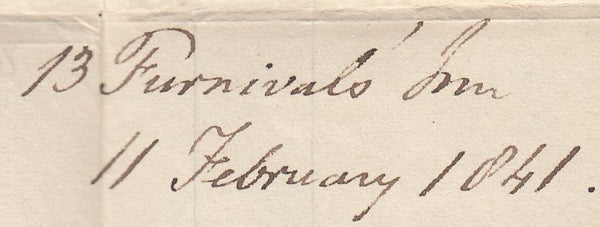 13 Furnival's Inn
11 February 1841.